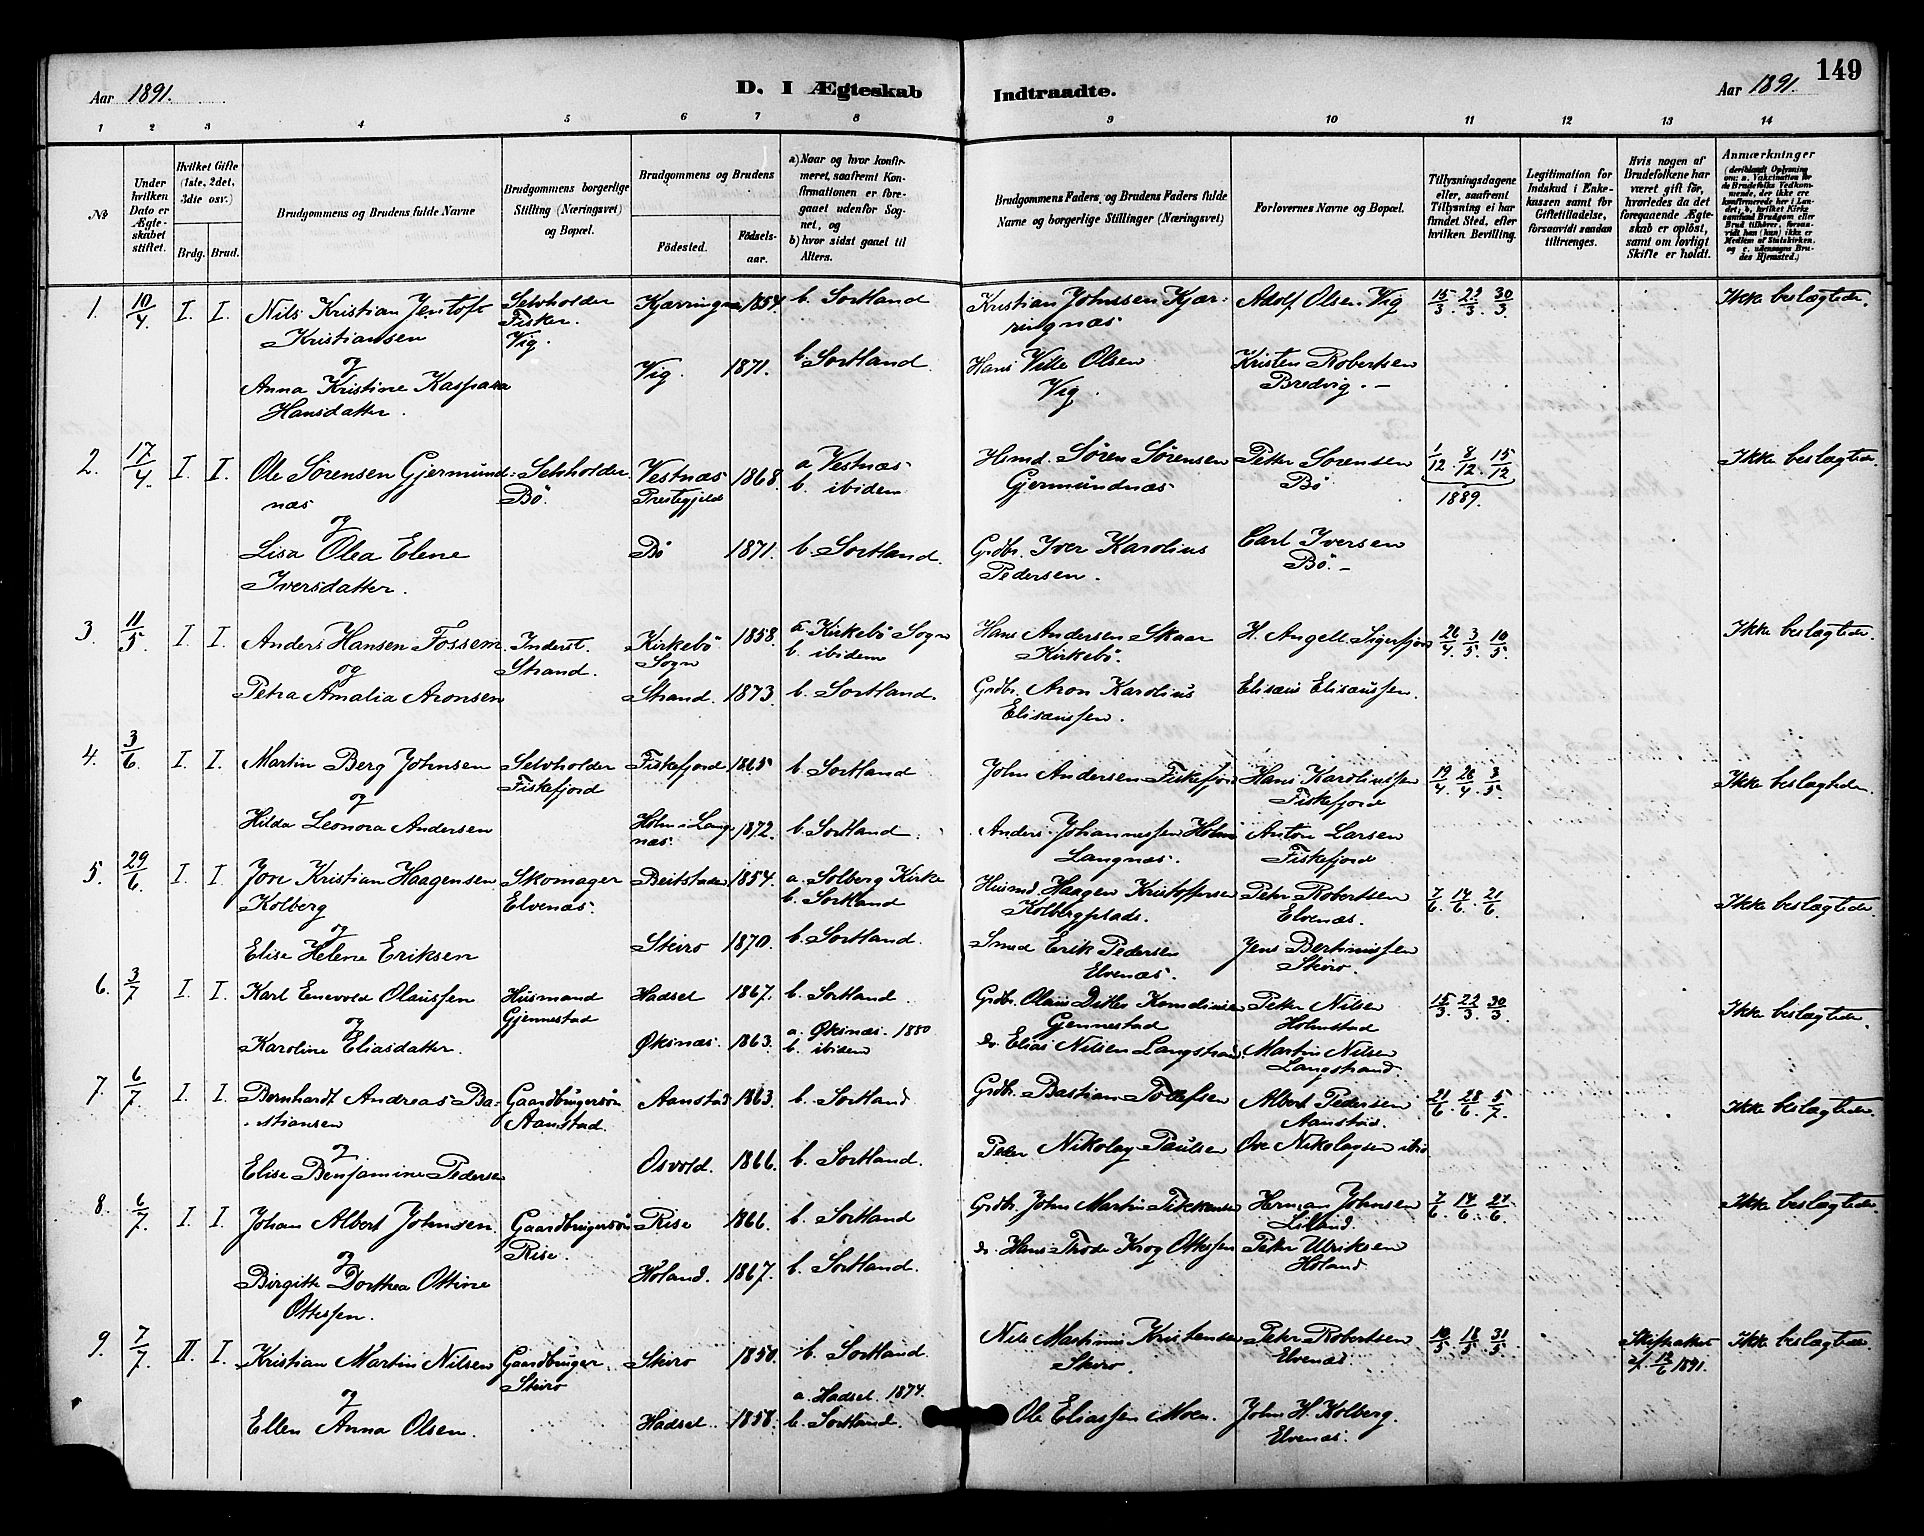 149
Aar 1891.
D. I Ægteskab
Indtraadte.
Aar 1891.
1 2 3 4 5 6 7 8 9 10 11 12 13 14
№
Under hvilken Dato er Ægteskabet stiftet.
Hvilket Gifte (1ste, 2det, 3die osv.)
Brdg. Brud.
Brudgommens og Brudens fulde Navne
Brudgommens borgerlige Stilling (Næringsvei) og Bopæl.
Brudgommens og Brudens
Födested.
Födselsaar.
a) Naar og hvor konfirmeret, saafremt Konfirmationen er foregaaet udenfor Sognet, og
b) hvor sidst gaaet til Alters.
Brudgommens Faders, og Brudens Faders fulde Navne og borgerlige Stillinger (Næringsvei)
Forlovernes Navne og Bopæl.
Tillysningsdagene eller, saafremt Tillysning ei har fundet Sted, efter hvilken Bevilling.
Legitimation for Indskud i Enkekassen samt for Giftetilladelse, forsaavidt saadan tiltrænges.
Hvis nogen af Brudefolkene har været gift för, hvorledes da det foregaaende Ægteskab er oplöst, samt om lovligt Skifte er holdt.
Anmærkninger
1. 10/4 I. I. Nils Kristian Jentoft Selvholder Kjærringnæs 1854. b. Sortland Kristian Johnssen Kjær- Adolf Olsen Vig 15/3. 23/3. 30/3 Ikke beslægtede.
Kristiansen Fisker. ringnæs
Vig.
og Vig. 1871. b. Sortland. Hans Ville Olsen Kristen Robertsen
Anna Kristine Kaspara Vig. Bredvig. –
Hansdatter.
2. 17/4 I. I. Ole Sørensen Gjermund- Selvholder Vestnæs 1868. a Vestnæs Hsmd. Søren Sørensen Petter Sørensen 1/12. 8/12. 15/12 Ikke beslægtede.
næs Bö. Prestegjeld b. ibidem Gjermundnæs Bö 1889.
og
Lisa Olea Elene Bö 1871. b. Sortland. Grdbr. Iver Karolius Carl Iversen
Iversdatter. Pedersen. Bö. –
3. 11/5 I I. Anders Hansen Fossem Inderst. Kirkebö 1858. a. Kirkebö Sogn Hans Andersen Skaar H. Angell Sigerfjord 26/4 3/5 10/5 Ikke beslægtede.
og Strand. Sogn b. ibidem Kirkebö.
Petra Amalia Aronsen Strand. 1873. b. Sortland. Grdbr. Aron Karolius Elisæus Elisæussen.
Elisæussen.
4. 3/6 I. I. Martin Berg Johnsen Selvholder Fiskefjord 1865 b. Sortland John Andersen Fiskefjord Hans Karoliussen 19/4. 26/4. 3/5 Ikke beslægtede.
og Fiskefjord Fiskefjord
Hilda Leonora Andersen Holm i Lang- 1872. b. Sortland. Anders Johannessen Holm Anton Larsen
næs. Langnæs. Fiskefjord
5. 29/6 I. I. Jon Kristian Haagensen Skomager Beitstaden 1854. a. Solberg Kirke Husmd. Haagen Kristoffersen Peter Robertsen 7/6. 14/6. 21/6 Ikke beslægtede.
Kolberg Elvenæs. b. Sortland Kolbergplads. Elvenæs.
og
Elise Helene Eriksen Steiro 1870. b. Sortland. Smed Erik Pedersen Jens Bertinussen
Elvenæs. Steiro.
6. 3/7 I. I. Karl Enevold Olaussen Husmand Hadsel 1867. b. Sortland. Grdbr. Olaus Ditlev Peter Nilsen 15/3. 22/3. 30/3 Ikke beslægtede.
og Gjennestad Gjennestad Holmstad
Karoline Eliasdatter. Øksnæs. 1863. a. Øksnæs. 1880 do. Elias Nilsen Langstrand. Martin Nilsen
b. ibidem Langstrand.
7. 6/7 I. I. Bernhardt Andreas Ba- Gaardbrugersön Aanstad 1863. b. Sortland Grdbr. Bastian Tollefsen Albert Pedersen 21/6. 28/6. 5/7 Ikke beslægtede.
stiansen Aanstad. Aanstad.
og
Elise Benjamine Pedersen Osvold. 1866. b. Sortland. Peder Nikolay Paulsen Ove Nikolaysen ibid
8. 6/7 I. I. Johan Albert Johnsen Gaardbrugersön Rise 1866. b. Sortland Grdbr. John Martin Herman Johnsen 7/6. 14/6. 21/6 Ikke beslægtede.
og Rise. Liland.
Birgitte Dorthea Ottine Holand. 1867. b. Sortland. do. Hans Thode Krog Ottessen Peter Ulriksen
Ottessen. Holand
9. 7/7 II. I. Kristian Martin Nilsen Gaardbruger Steiro 1850. b. Sortland Nils Martinus Kristensen Peter Robertsen 10/5. 18/5. 31/5 Skifteattest Ikke beslægtede.
og Steiro Steiro. Elvenæs. af. 12/6 1891.
Ellen Anna Olsen. Hadsel. 1858. a. Hadsel. 1874. Ole Eliassen Moen. John H. Kolberg.
b. Sortland. Elvenæs.